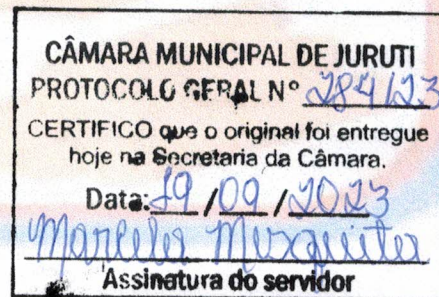 CÂMARA MUNICIPAL DE JURUTI
PROTOCOLO GERAL Nº 284/23
CERTIFICO que o original foi entregue
hoje na Secretaria da Câmara.
Data: 19 / 09 / 2023
Marcela Mesquita
Assinatura do servidor